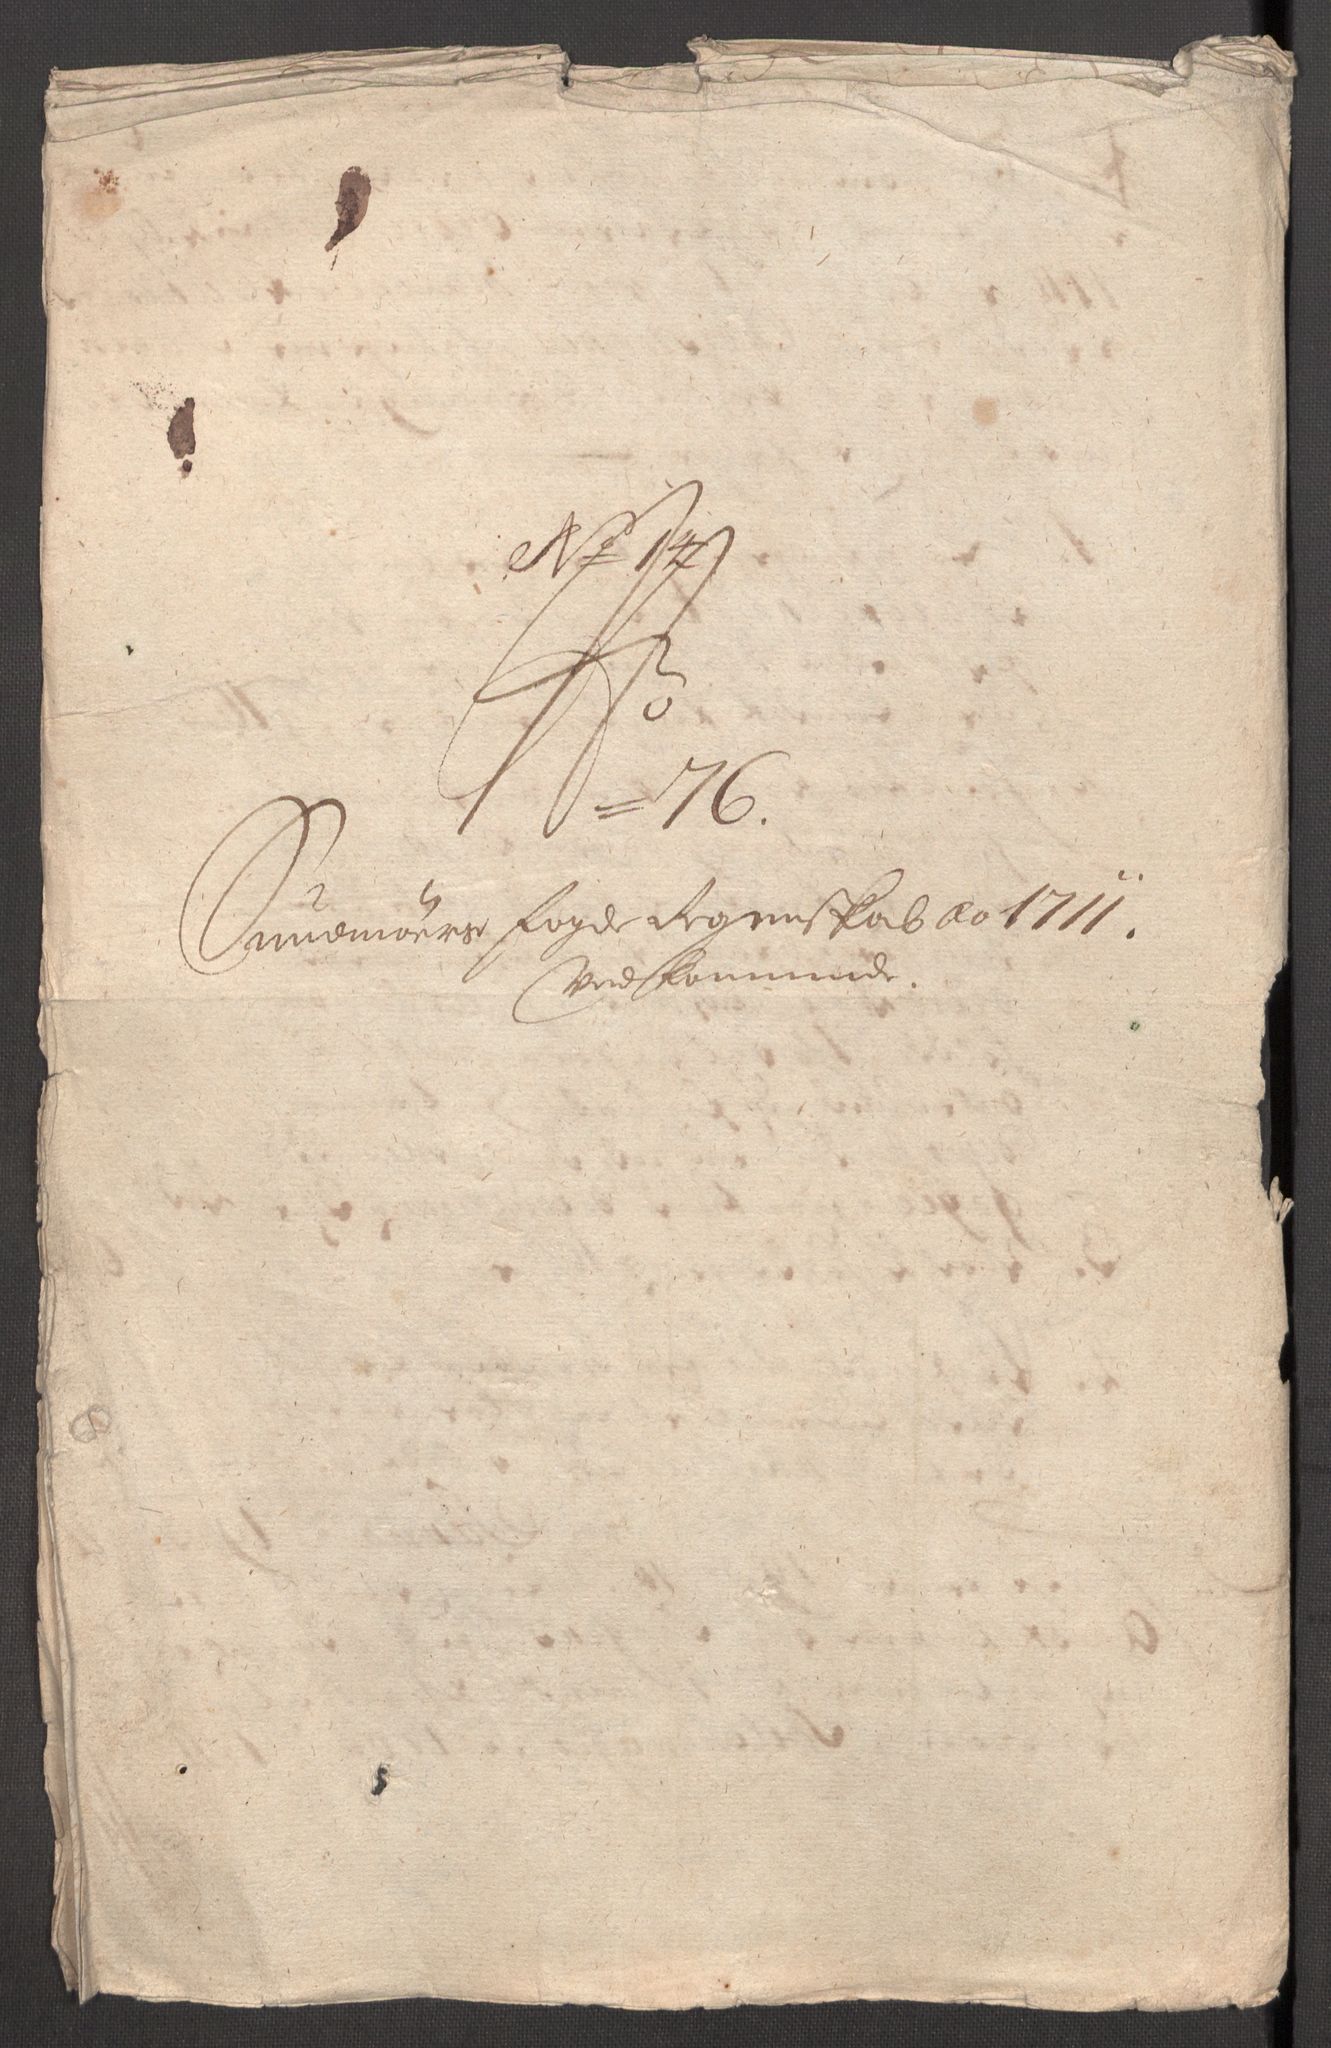 No 14
No
= 76.
Sundmöers Fogde Regenskab ao 1711.
Vedkommende.